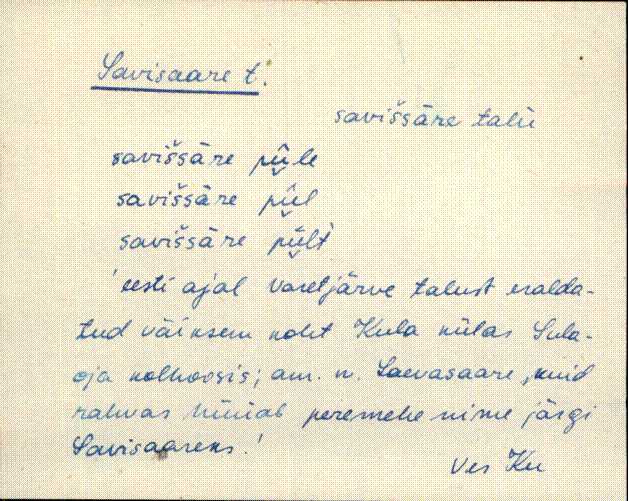 Savisaare t.
saviššāre talu
saviššāre pi̮i̮le
saviššāre pi̮i̮l
saviššāre pi̮i̮lt
'eesti ajal Varetjärve talust eralda-
tud väiksem koht Kula külas Sula-
oja kolhoosis; am. n. Laevasaare, kuid
rahvas hüüab peremehe nime järgi
Savisaareks.'
Ves Ku